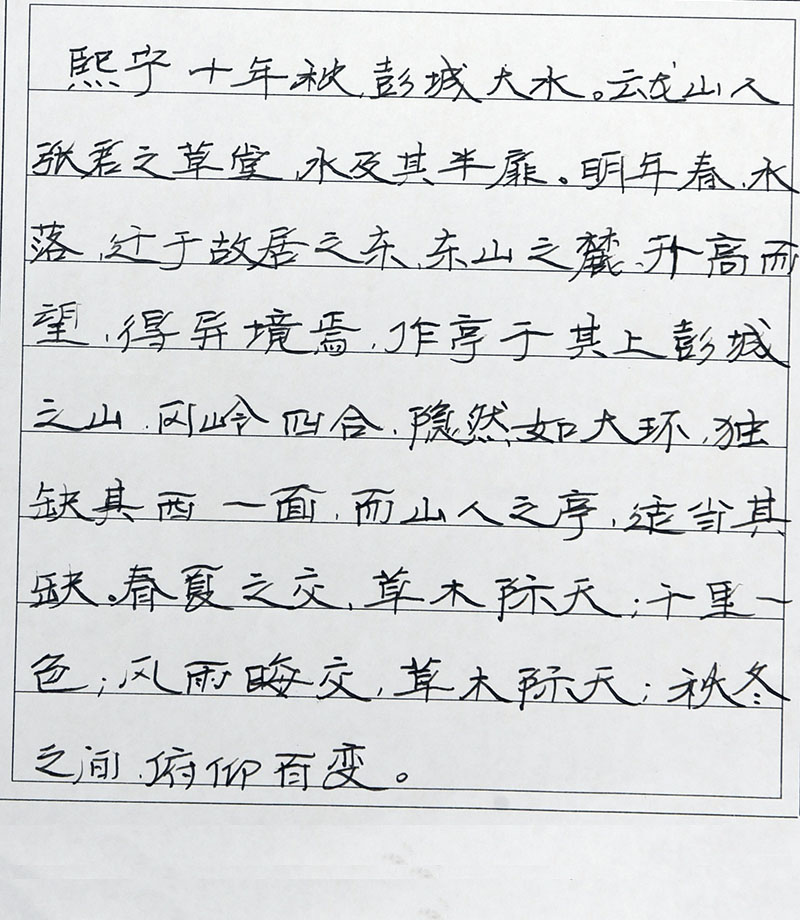 熙宁十年秋,彭城大水。云龙山人
张君之草堂,水及其半扉。明年春,水
落,迁于故居之东,东山之麓,升高而
望,得异境焉,作亭于其上彭城
之山,冈岭四合,隐然如大环,独
缺其西一面,而山人之亭,适当其
缺。春夏之交,草木际天;千里一
色;风雨晦交,草木际天;秋冬
之间,俯仰百变。